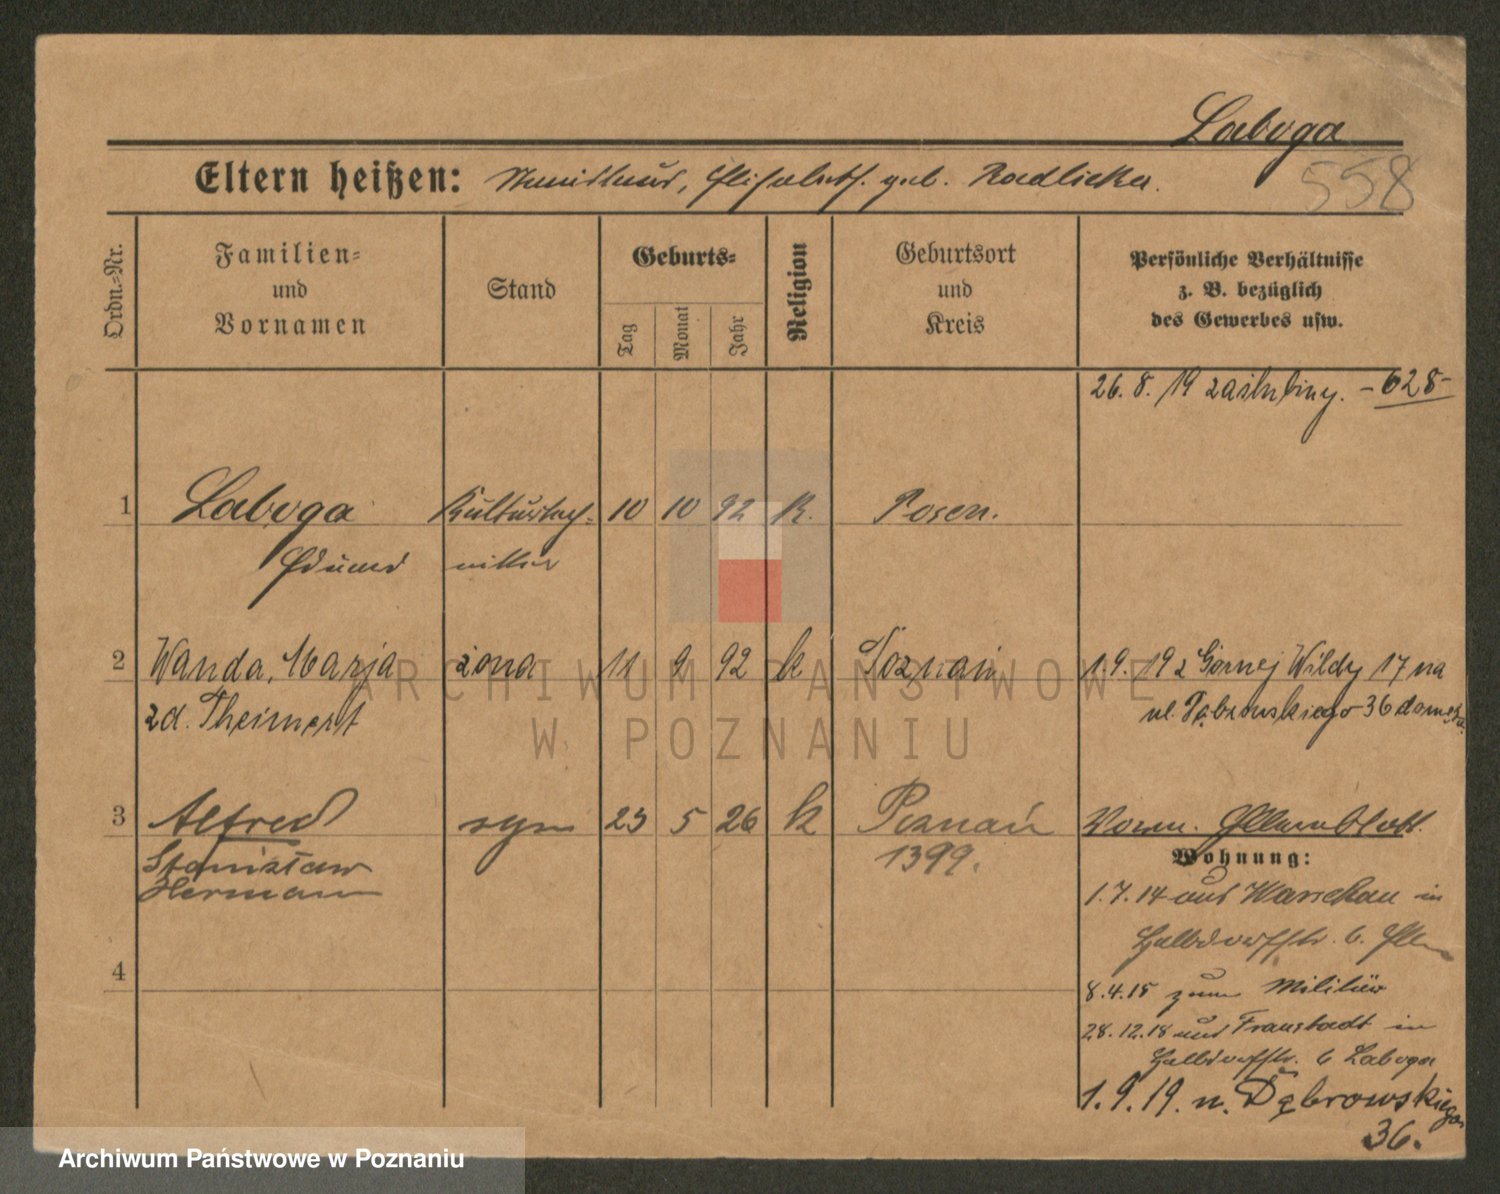 Laboga
558
Eltern heißen: Stanislaus, Elisabeth geb. Radlicka.
Ordn.-Nr.
Familien-
und
Vornamen
Stand
Geburts-
Tag
Monat
Jahr
Religion
Geburtsort
und
Kreis
Persönliche Verhältnisse
z. B. bezüglich
des Gewerbes usw.
26. 8. 19 zaślubiny. - 628 -
1 Laboga Kulturtech- 10 10 92 K. Posen.
Edmund niker
2 Wanda, Marja żona 11 9 92 k Poznań 1.9.19 z Górnej Wildy 17 na
zd. Theinert ul. Dąbrowskiego 36
3 Alfred syn 23 5 26 k Poznań Vorm. Elternblatt.
Stanisław 1399.
Hermann
Wohnung:
1.7.14 aus Warschau in
Halbdorfstr. 6. Eltern
4
8.4.15 zum Militär
28.12.18 aus Fraustadt in
Halbdorfstr. 6 Laboga
1.9.19. n. Dąbrowskiego
36.
ARCHIWUM PAŃSTWOWE
W POZNANIU
Archiwum Państwowe w Poznaniu